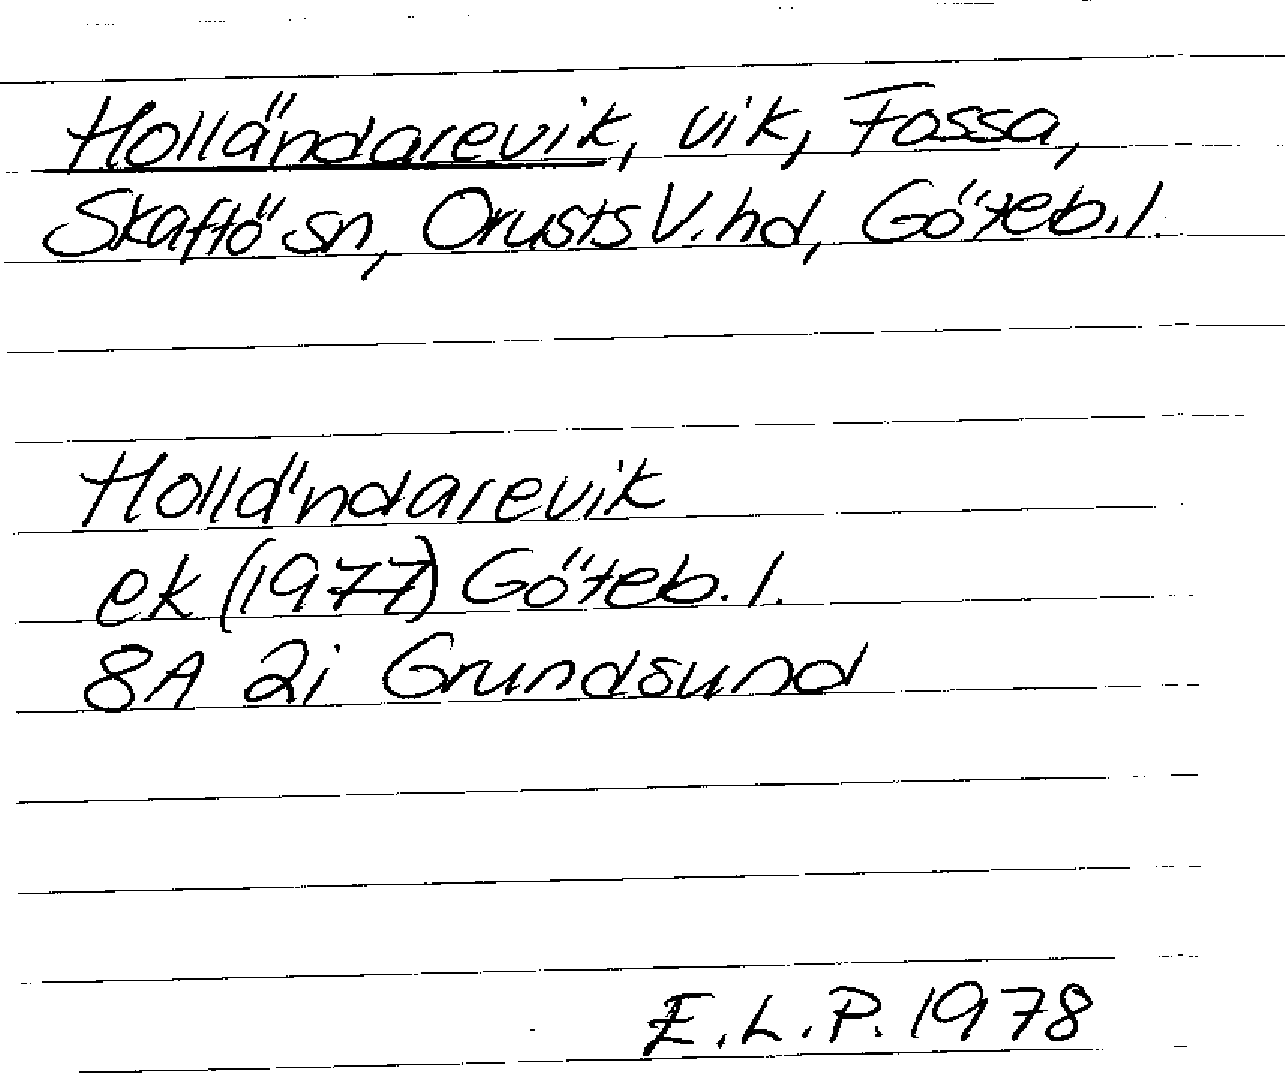 Holländarevik, vik, Fossa,
Skaftö sn, Orusts V. hd, Göteb. l.
Holländarevik
ek (1977) Göteb. l.
8A 2i Grundsund
E.L.P. 1978